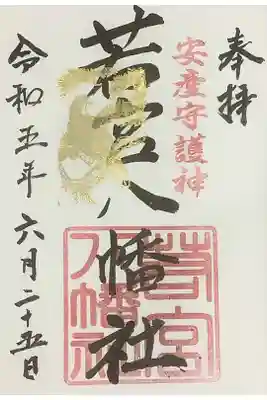 奉拝
安産守護神
若宮八幡社
若宮八幡社
令和五年 六月二十五日